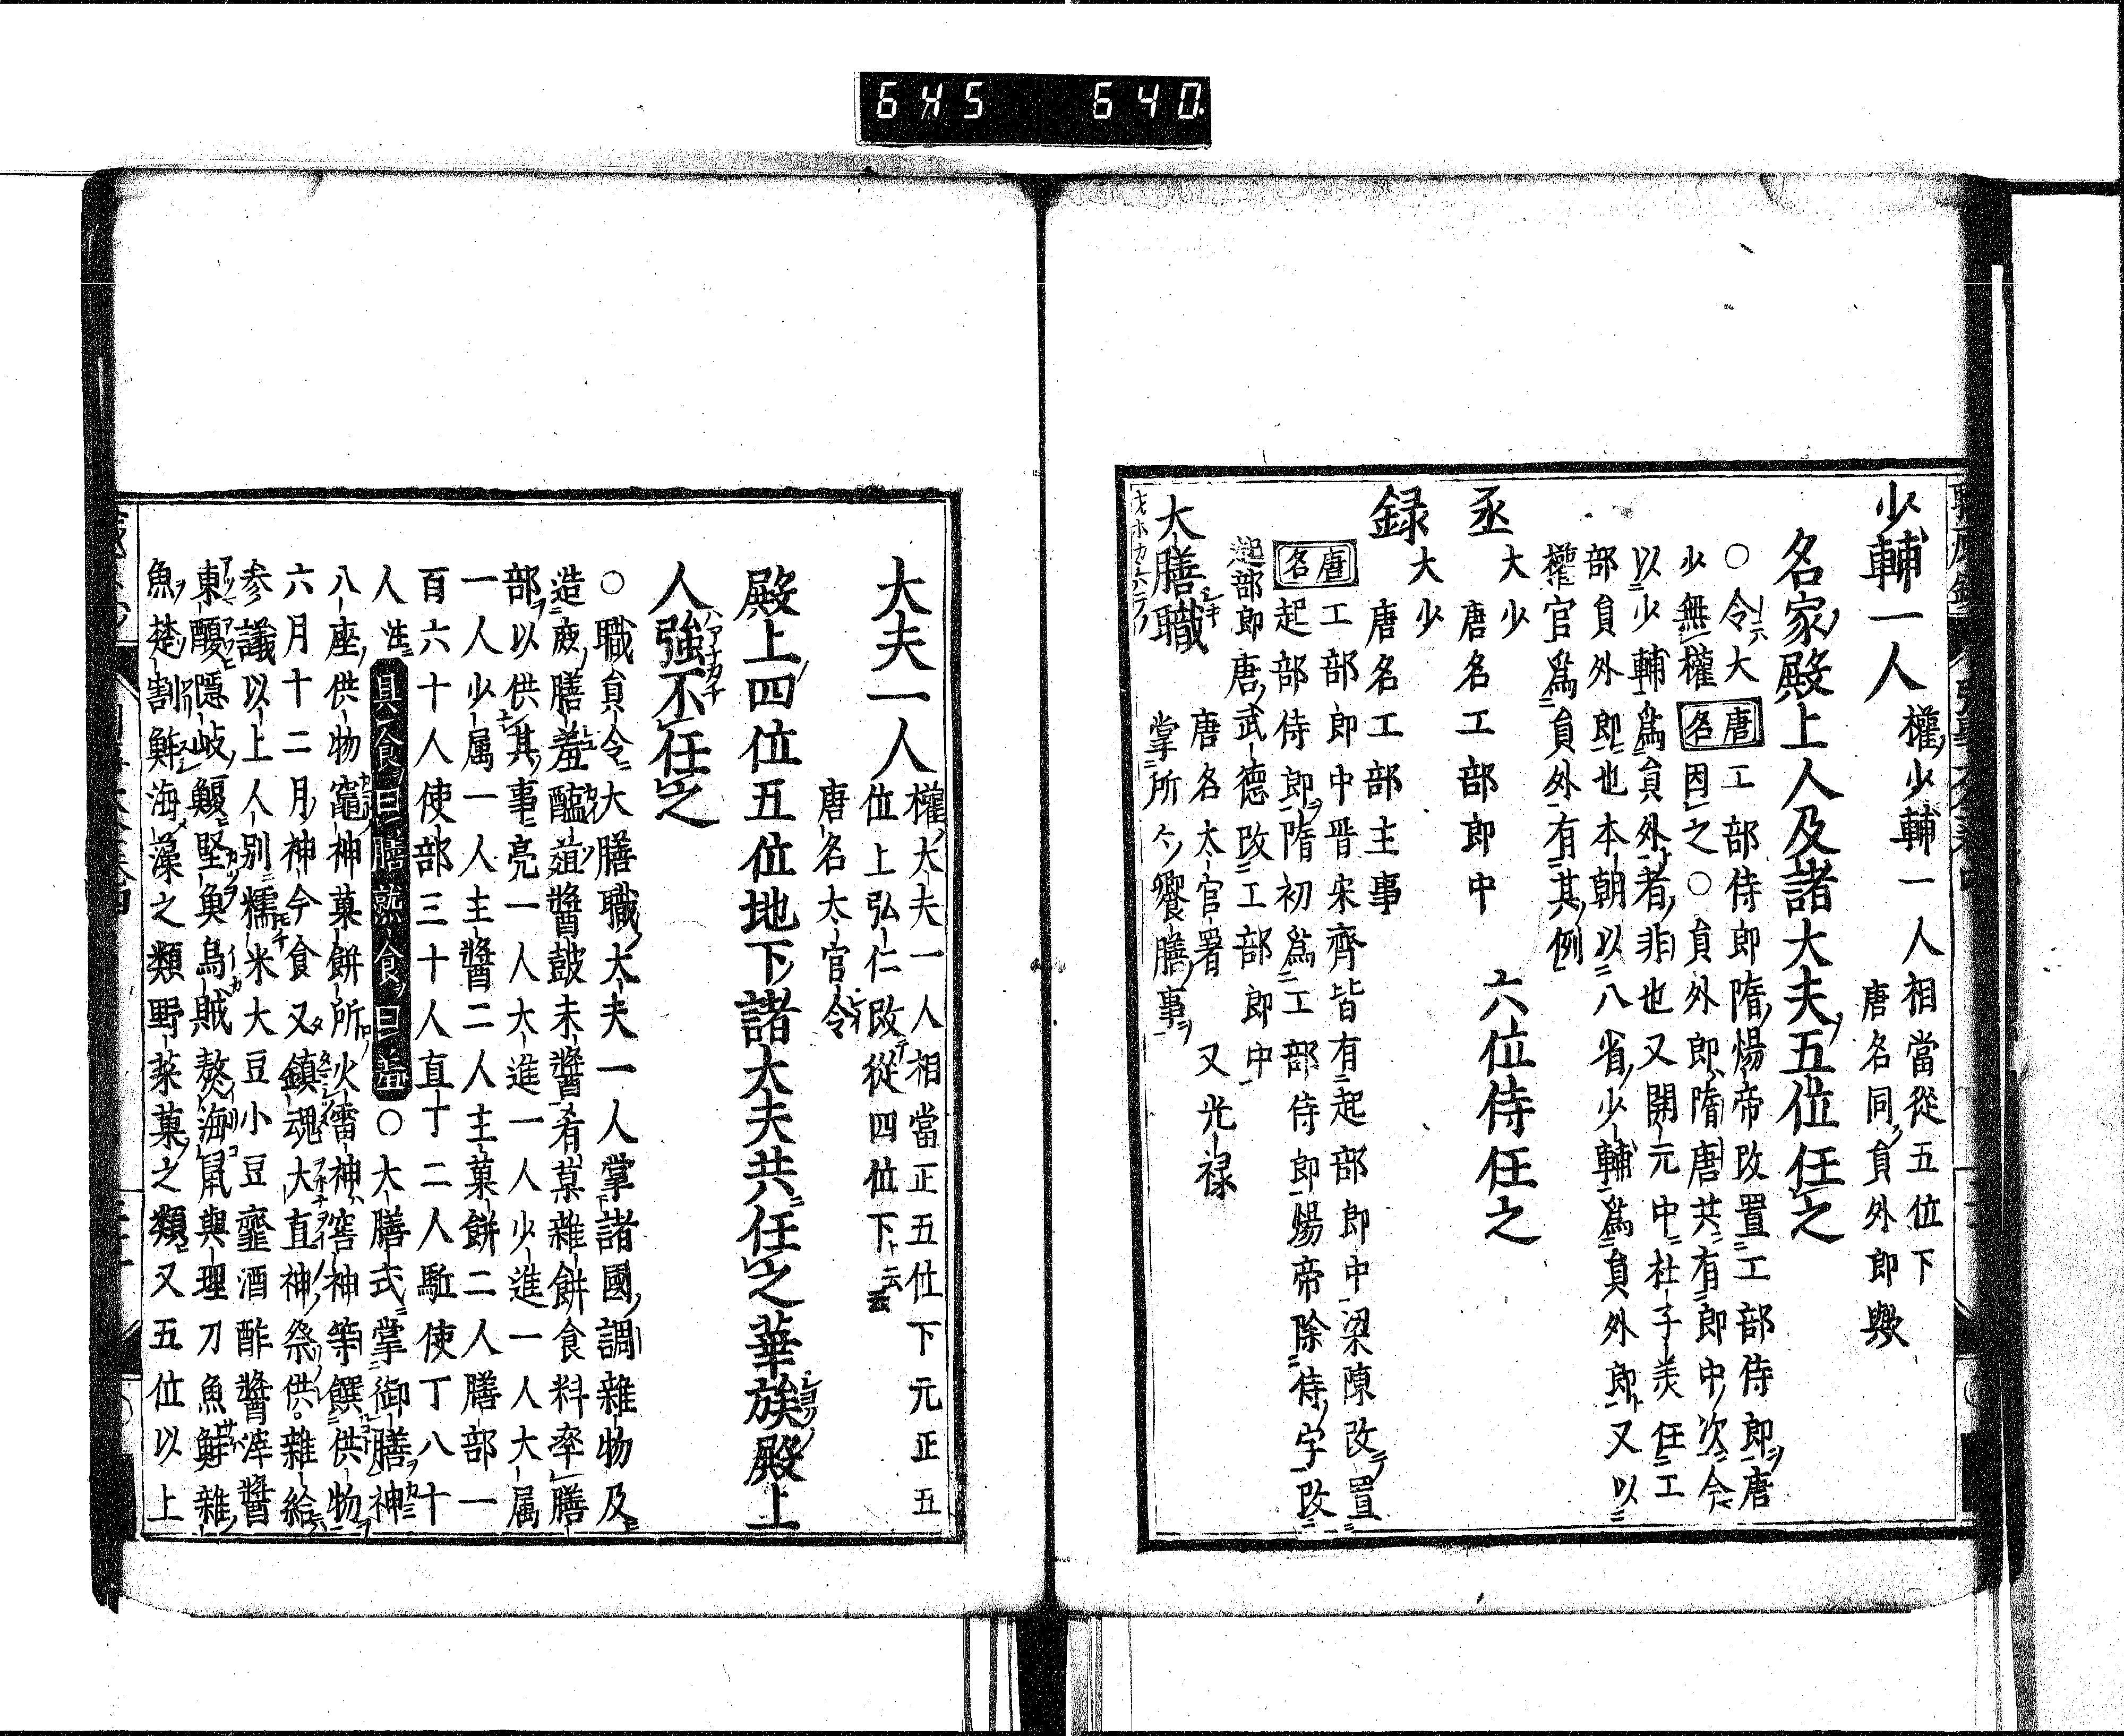 645 640
少輔一人
權少輔一人相當從五位下
唐名同員外郎歟
名家殿上人及諸大夫五位任之
○令大唐名工部侍郎隋煬帝改置工部侍郎唐
少無權因之○員外郎隋唐共有郎中次今
以少輔爲員外者非也又開元中杜子美任工
部員外郎也本朝以八省少輔爲員外郎又以
權官爲員外有其例
丞
大少
唐名工部郎中
六位侍任之
録
大少
唐名工部主事
唐名工部郎中晋宋齊皆有起部郎中梁陳改置
起部侍郎隋初爲工部侍郎煬帝除侍字改
起部郎唐武德改工部郎中
大膳職
唐名太官署又光禄
掌所々饗膳事
大夫一人
權大夫一人相當正五位下元正五
位上弘仁改從四位下云云
唐名太官令
殿上四位五位地下諸大夫共任之華族殿上
人強不任之
○職員令大膳職大夫一人掌諸國調雜物及
造庶膳羞醢葅醬豉未醬肴菓雜餅食料率膳
部以供其事亮一人大進一人少進一人大属
一人少属一人主醬二人主菓餅二人膳部一
百六十人使部三十人直丁二人駈使丁八十
人注具食曰膳就食曰羞○大膳式掌御膳神
八座供物竈神菓餅所火雷神窖神等饌供物
六月十二月神今食又鎮魂大直神祭供雜給
参議以上人別糯米大豆小豆虀酒酢醬滓醬
東鰒隱岐鰒堅魚烏賊熬海鼠與理刀魚鮮雜
魚楚割鮓海藻之類野菜菓之類又五位以上